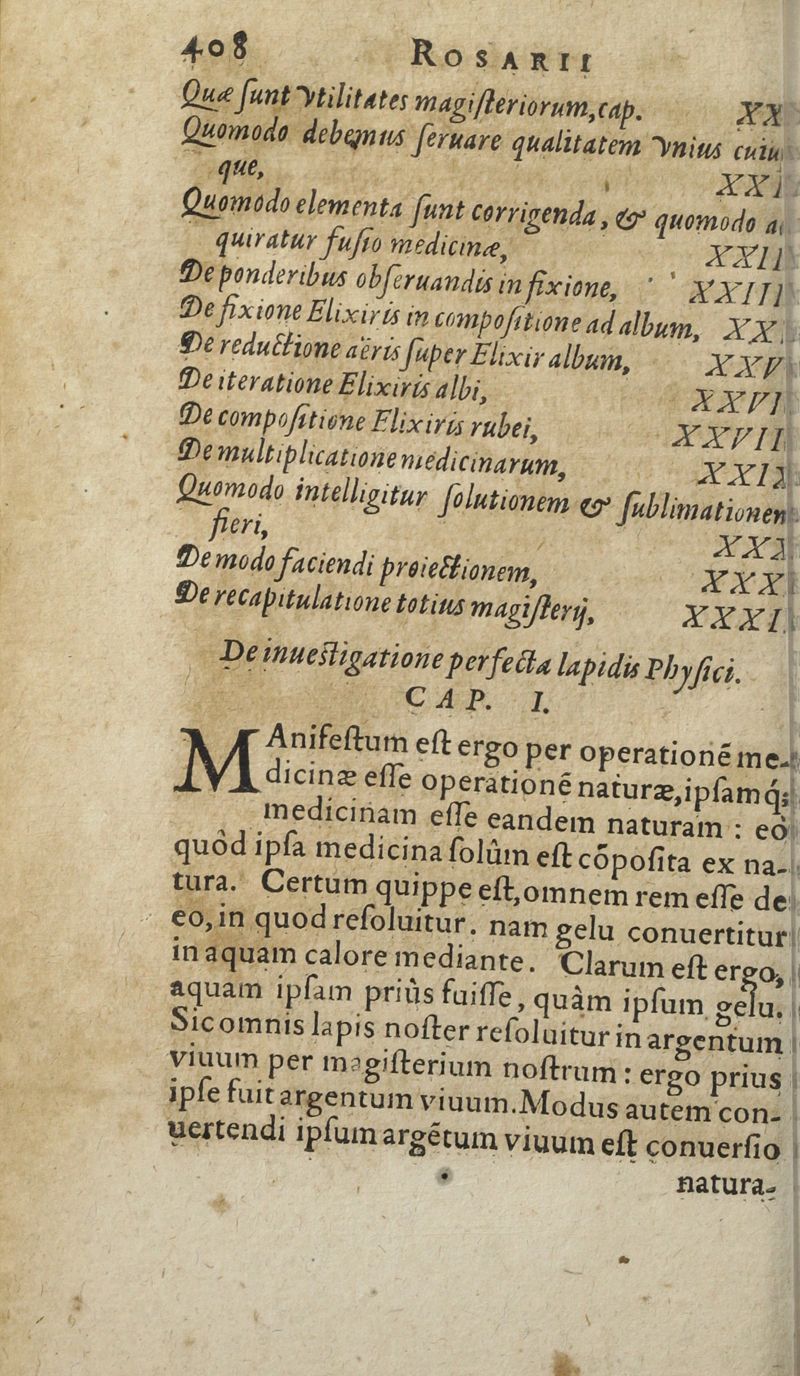 408 ROSARII
Quæ ſunt vtilitates magiſteriorum, cap. XX
Quomodo debemus ſeruare qualitatem vnius cuiu
que, XXI
Quomodo elementa ſunt corrigenda, & quomodo a
quiratur fuſio medicinæ, XXII
De ponderibus obſeruandis in fixione, XXIII
De fixione Elixiris in compoſitione ad album, XX
De reductione aëris ſuper Elixir album, XXV
De iteratione Elixiris albi, XXVI
De compoſitione Elixiris rubei, XXVII
De multiplicatione medicinarum, XXIX
Quomodo intelligitur ſolutionem & ſublimationem
fieri, XXX
De modo faciendi proiectionem, XXXI
De recapitulatione totius magiſterij, XXXII
De inueſtigatione perfecta lapidis Phyſici.
CAP. I.
MAnifeſtum eſt ergo per operationē me-
dicinæ eſſe operationē naturæ, ipſamq́;
medicinam eſſe eandem naturam : eò
quòd ipſa medicina ſolùm eſt cōpoſita ex na-
tura. Certum quippe eſt, omnem rem eſſe de
eo, in quod reſoluitur. nam gelu conuertitur
in aquam calore mediante. Clarum eſt ergo,
aquam ipſam priùs fuiſſe, quàm ipſum gelu.
Sic omnis lapis noſter reſoluitur in argentum
viuum per magiſterium noſtrum : ergo prius
ipſe fuit argentum viuum. Modus autem con-
uertendi ipſum argētum viuum eſt conuerſio
natura-